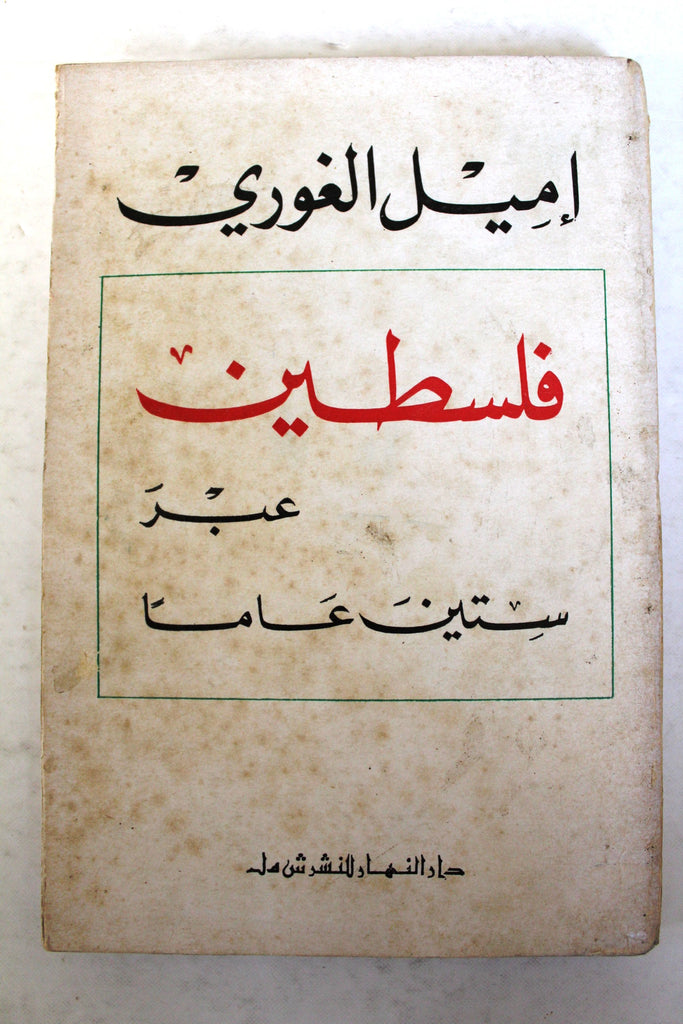 إميل الغوري
فلسطين
عبرَ
ستينَ عَامًا
دار النهار للنشر ش م ل